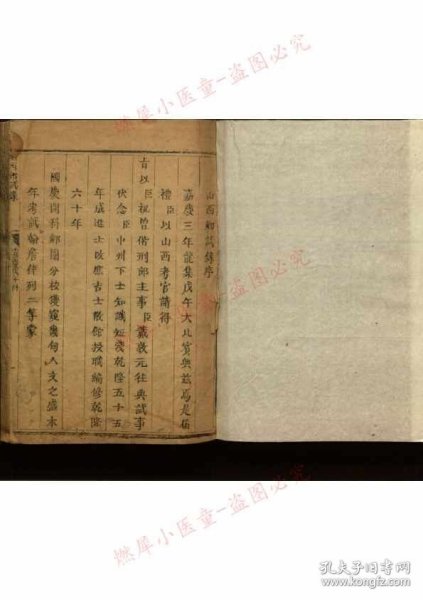 燃犀小医童-盗图必究
山西鄉試錄序
嘉慶三年龍集戊午大比賓興茲焉是
禮臣以山西考官請得
旨以臣祝曾偕刑部主事臣戴敦元往典試事
伏念臣中州下士知識短淺乾隆五十五
年成進士改庶吉士散館授職編修乾隆
六十年
國慶開科鄉闈分校獲窺幾甸人文之盛本
年考試翰詹侔列二等蒙
燃犀小医童-盗图必究
燃犀小医童-盗图必究
孔夫子旧书网
www.kongfz.com